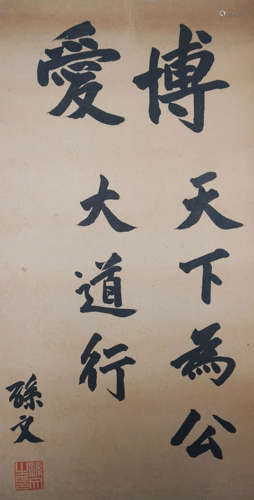 博愛
天下為公
大道行
孫文